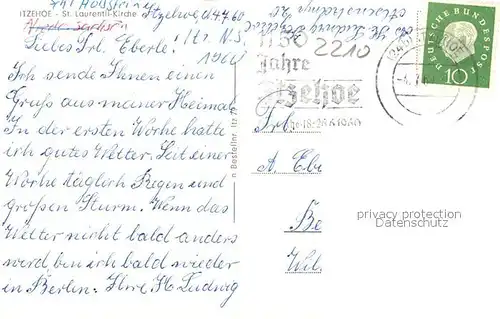 ITZEHOE - St. Laurentii-Kirche
Itzehoe, d. 4.7.60
Liebes Frl. Eberle!
1960
Ich sende Ihnen einen
Gruß aus meiner Heimat.
In der ersten Woche hatte
ich gutes Wetter. Seit einer
Woche täglich Regen und
großen Sturm. Wenn das
Wetter nicht bald anders
wird bin ich bald wieder
in Berlin. Ihre H. Ludwig
Bestellnr.
2210
Jahre
Itzehoe
18-26.6.1960
DEUTSCHE BUNDESPOST
10
Frl.
A. Ebe
Be
Wil
privacy protection
Datenschutz